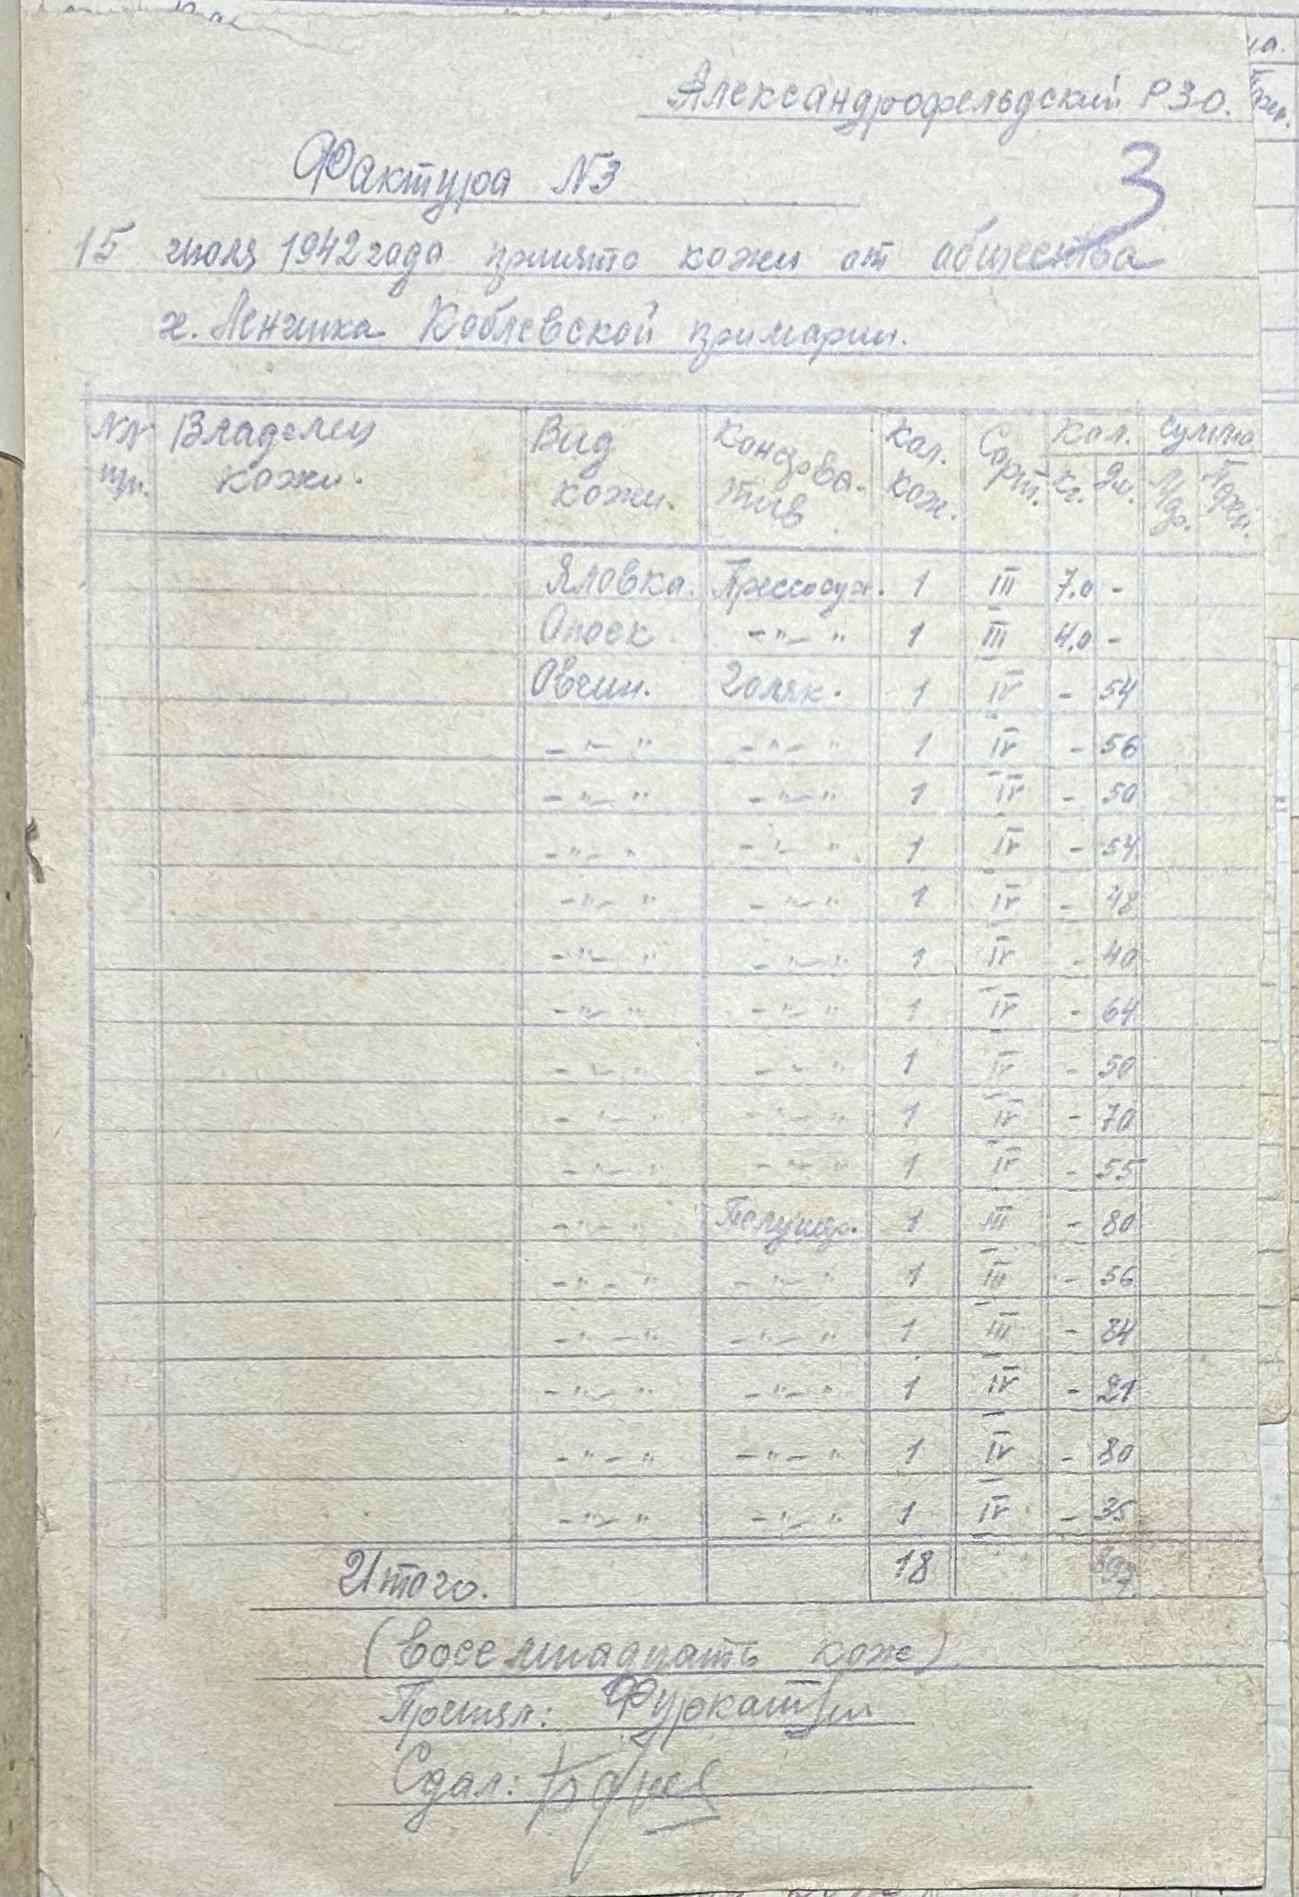 Александрофельдский РЗО.
Фактура №3
3
15 июля 1942 года принято кожи от общества
х. Ленчика Коблевской примарии.
№№ пр. Владелец кожи. Вид кожи. Консерва-тив Кол. кож. Сорт. Кол. кг. Дм. Сумма
Яловка. Прессосух. 1 III 7.0 -
Опоек -"- " 1 III 4.0 -
Овчин. Голяк. 1 IV - 54
-"- " -"- " 1 IV - 56
-"- " -"- " 1 IV - 50
-"- " -"- " 1 IV - 54
-"- " -"- " 1 IV - 48
-"- " -"- " 1 IV - 40
-"- " -"- " 1 IV - 64
-"- " -"- " 1 IV - 50
-"- " -"- " 1 IV - 70
-"- " -"- " 1 IV - 55
-"- " Полушер. 1 III - 80
-"- " -"- " 1 III - 56
-"- " -"- " 1 III - 84
-"- " -"- " 1 IV - 21
-"- " -"- " 1 IV - 80
-"- " -"- " 1 IV - 35
Итого. 18
(Восемнадцать кож)
Принял:
Сдал: